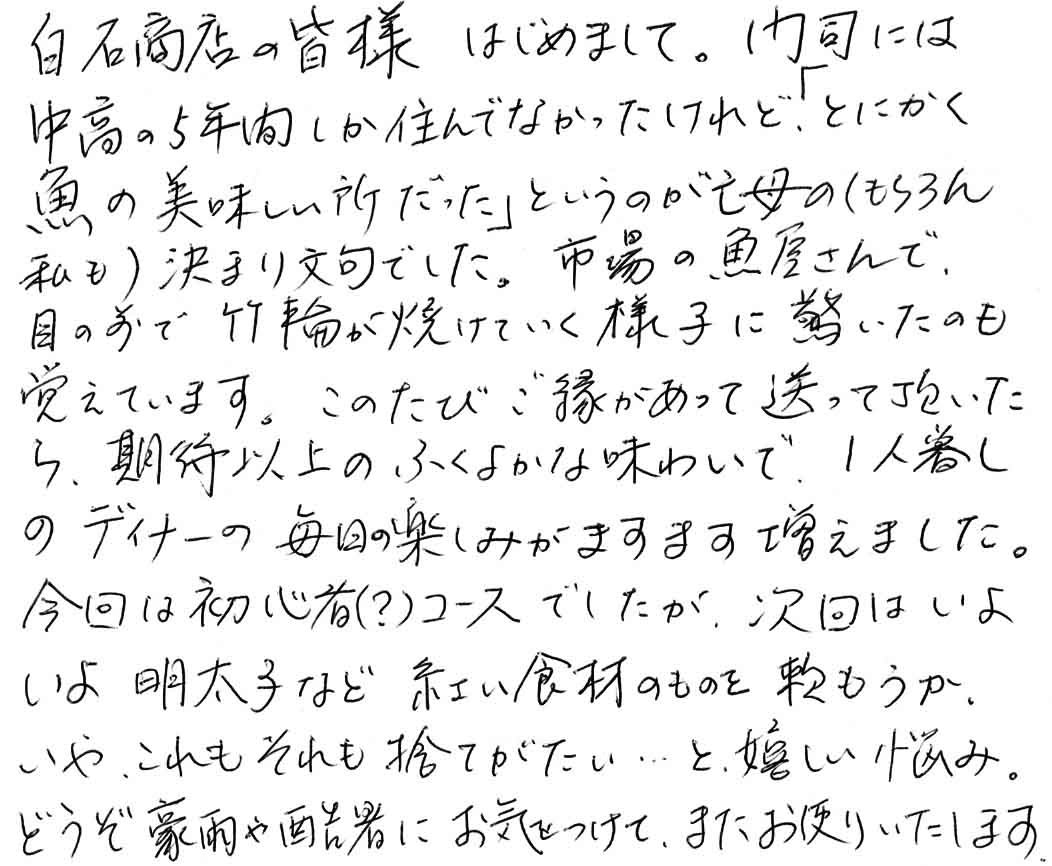 白石商店の皆様 はじめまして。「門司には
中高の5年間しか住んでなかったけれど、とにかく
魚の美味しい所だった」というのが亡母の(もちろん
私も)決まり文句でした。 市場の魚屋さんで、
目の前で 竹輪が焼けていく様子に驚いたのも
覚えています。このたびご縁があって送って頂いた
ら、期待以上のふくよかな味わいで、1人暮し
のディナーの毎日の楽しみがますます増えました。
今回は初心者(?)コースでしたが、次回はいよ
いよ 明太子など 紅い食材のものを頼もうか、
いや、これもそれも捨てがたい…と、嬉しい悩み。
どうぞ豪雨や酷暑にお気をつけて、またお便りいたします。